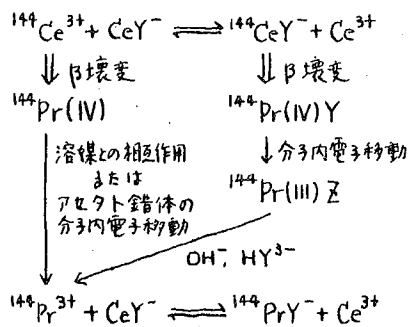 ¹⁴⁴Ce³⁺ + CeY⁻ ⇌ ¹⁴⁴CeY⁻ + Ce³⁺
⇓ β壊変 ⇓ β壊変
¹⁴⁴Pr(IV) ¹⁴⁴Pr(IV)Y
溶媒との相互作用
または
アセタト錯体の
分子内電子移動
↓ 分子内電子移動
¹⁴⁴Pr(III)Z
OH⁻, HY³⁻
¹⁴⁴Pr³⁺ + CeY⁻ ⇌ ¹⁴⁴PrY⁻ + Ce³⁺